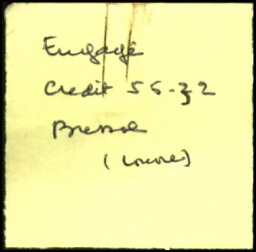 Engagé
Credit 56-32
Bresse
(Louvre)